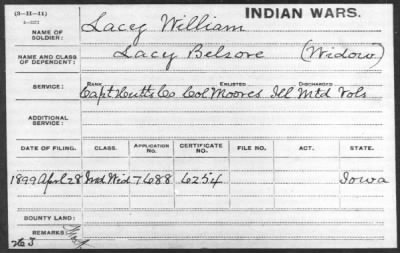 (3-II-41)
INDIAN WARS.
NAME OF SOLDIER: Lacey William
NAME AND CLASS OF DEPENDENT: Lacy Belsore (Widow)
RANK ENLISTED DISCHARGED
SERVICE: Capt Cutts Co Col Moores Ill Mtd Vols
ADDITIONAL SERVICE:
DATE OF FILING. CLASS. APPLICATION No. CERTIFICATE No. FILE NO. ACT. STATE.
1899 April 28 Ind Wid 7688 6254 Iowa
BOUNTY LAND:
REMARKS: